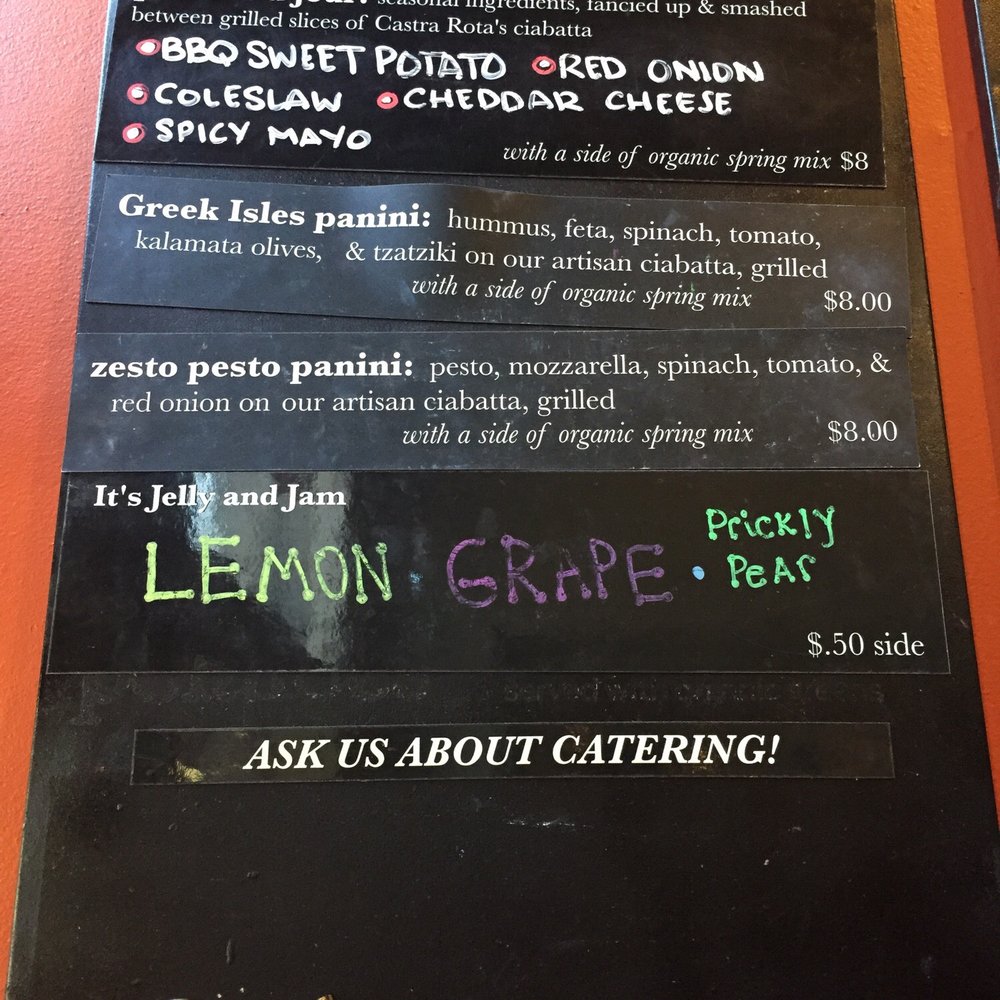 seasonal ingredients, fancied up & smashed
between grilled slices of Castra Rota's ciabatta
BBQ SWEET POTATO RED ONION
COLESLAW CHEDDAR CHEESE
SPICY MAYO
with a side of organic spring mix $8
Greek Isles panini: hummus, feta, spinach, tomato,
kalamata olives, & tzatziki on our artisan ciabatta, grilled
with a side of organic spring mix $8.00
zesto pesto panini: pesto, mozzarella, spinach, tomato, &
red onion on our artisan ciabatta, grilled
with a side of organic spring mix $8.00
It's Jelly and Jam
LEMON · GRAPE · Prickly Pear
$.50 side
ASK US ABOUT CATERING!